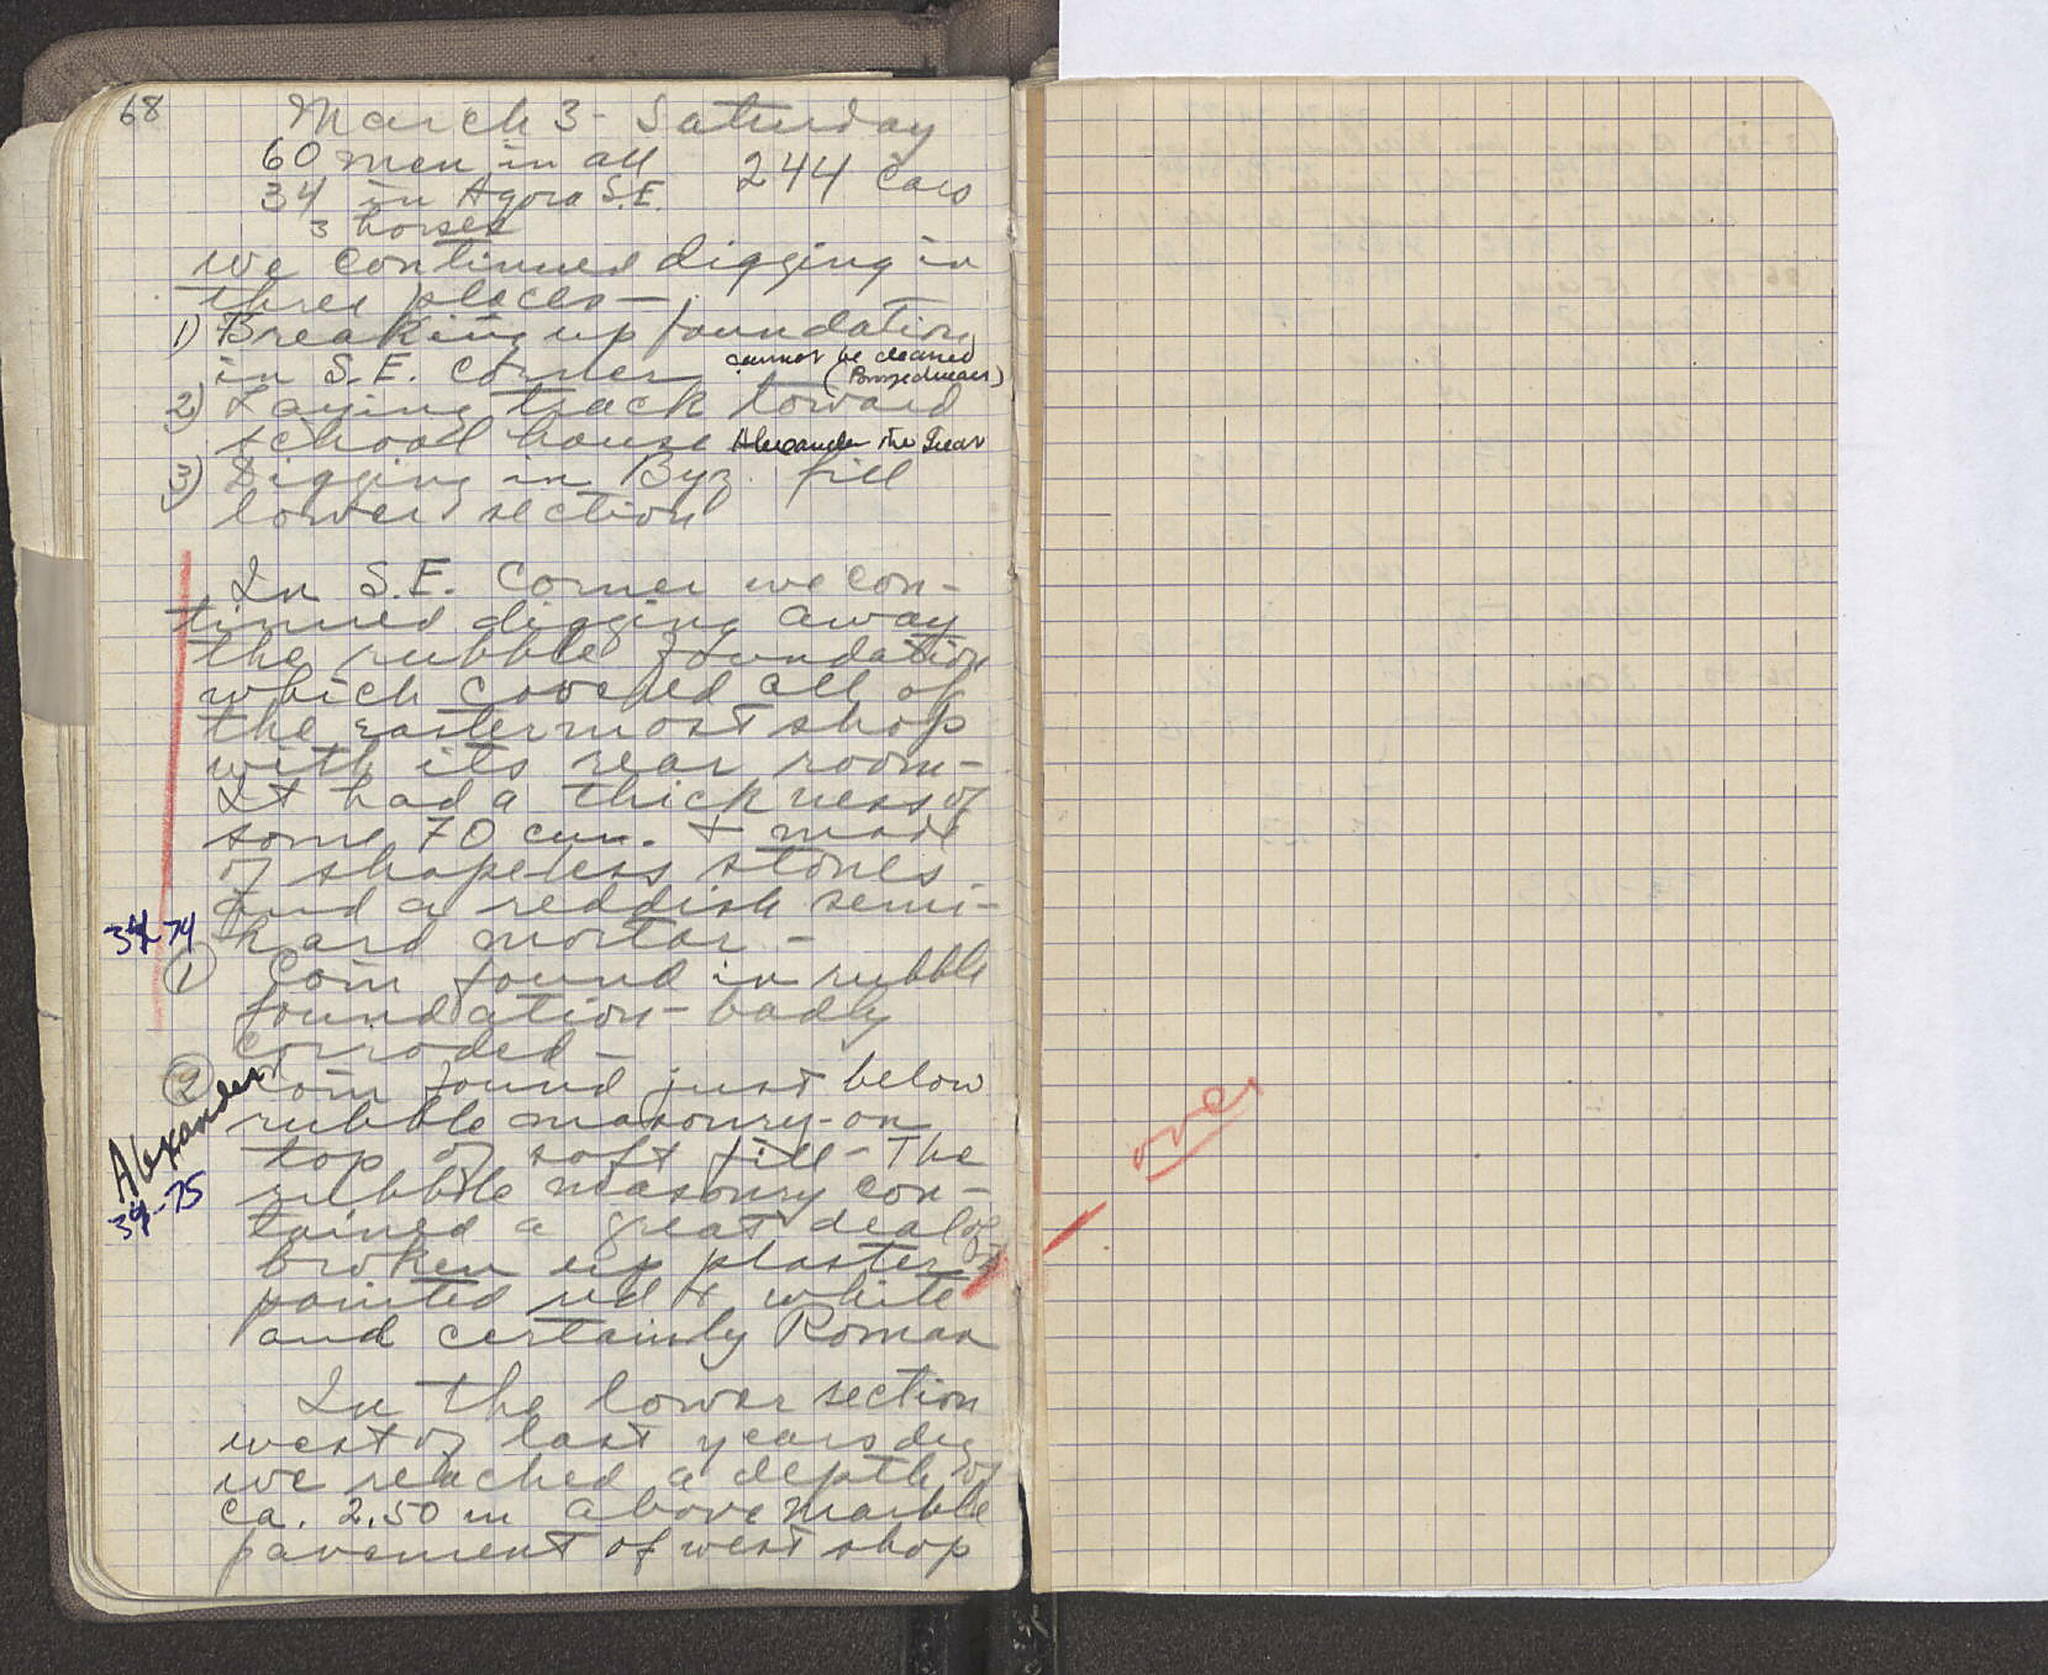 68
March 3 - Saturday
60 men in all
244 cars
34 in Agora S.E.
3 horses
we continued digging in
three places -
1) Breaking up foundation
in S.E. corner
cannot be cleaned
2) Laying track toward
school house
Alexander the Great
3) Digging in Byz. fill
lower section
In S.E. Corner we con-
tinued digging away
the rubble foundation
which covered all of
the easternmost shop
with its rear room -
It had a thickness of
some 70 cm. + made
of shapeless stones
and a reddish semi-
hard mortar -
34-74
① Coin found in rubble
foundation - badly
corroded -
② Coin found just below
rubble masonry - on
top of soft fill - The
rubble masonry con-
tained a great deal of
broken up plaster
painted red + white
and certainly Roman
Alexander
34-75
In the lower section
west of last years dig
we reached a depth of
ca. 2.50 m above marble
pavement of west shop
over